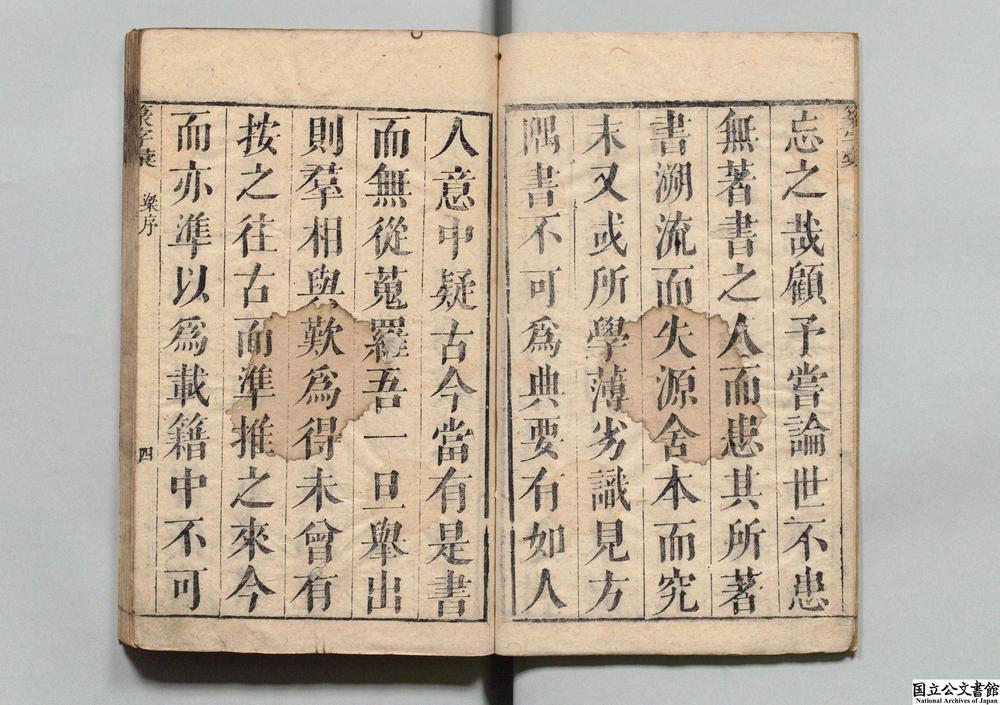 忘之哉顧予嘗論世不患
無著書之人而患其所著
書溯流而失源舍本而究
末又或所學薄劣識見方
隅書不可爲典要有如人
人意中疑古今當有是書
而無從蒐羅吾一旦舉出
則羣相與歎爲得未曾有
按之往古而準推之來今
而亦準以爲載籍中不可
字彙
梁序
四
国立公文書館
National Archives of Japan